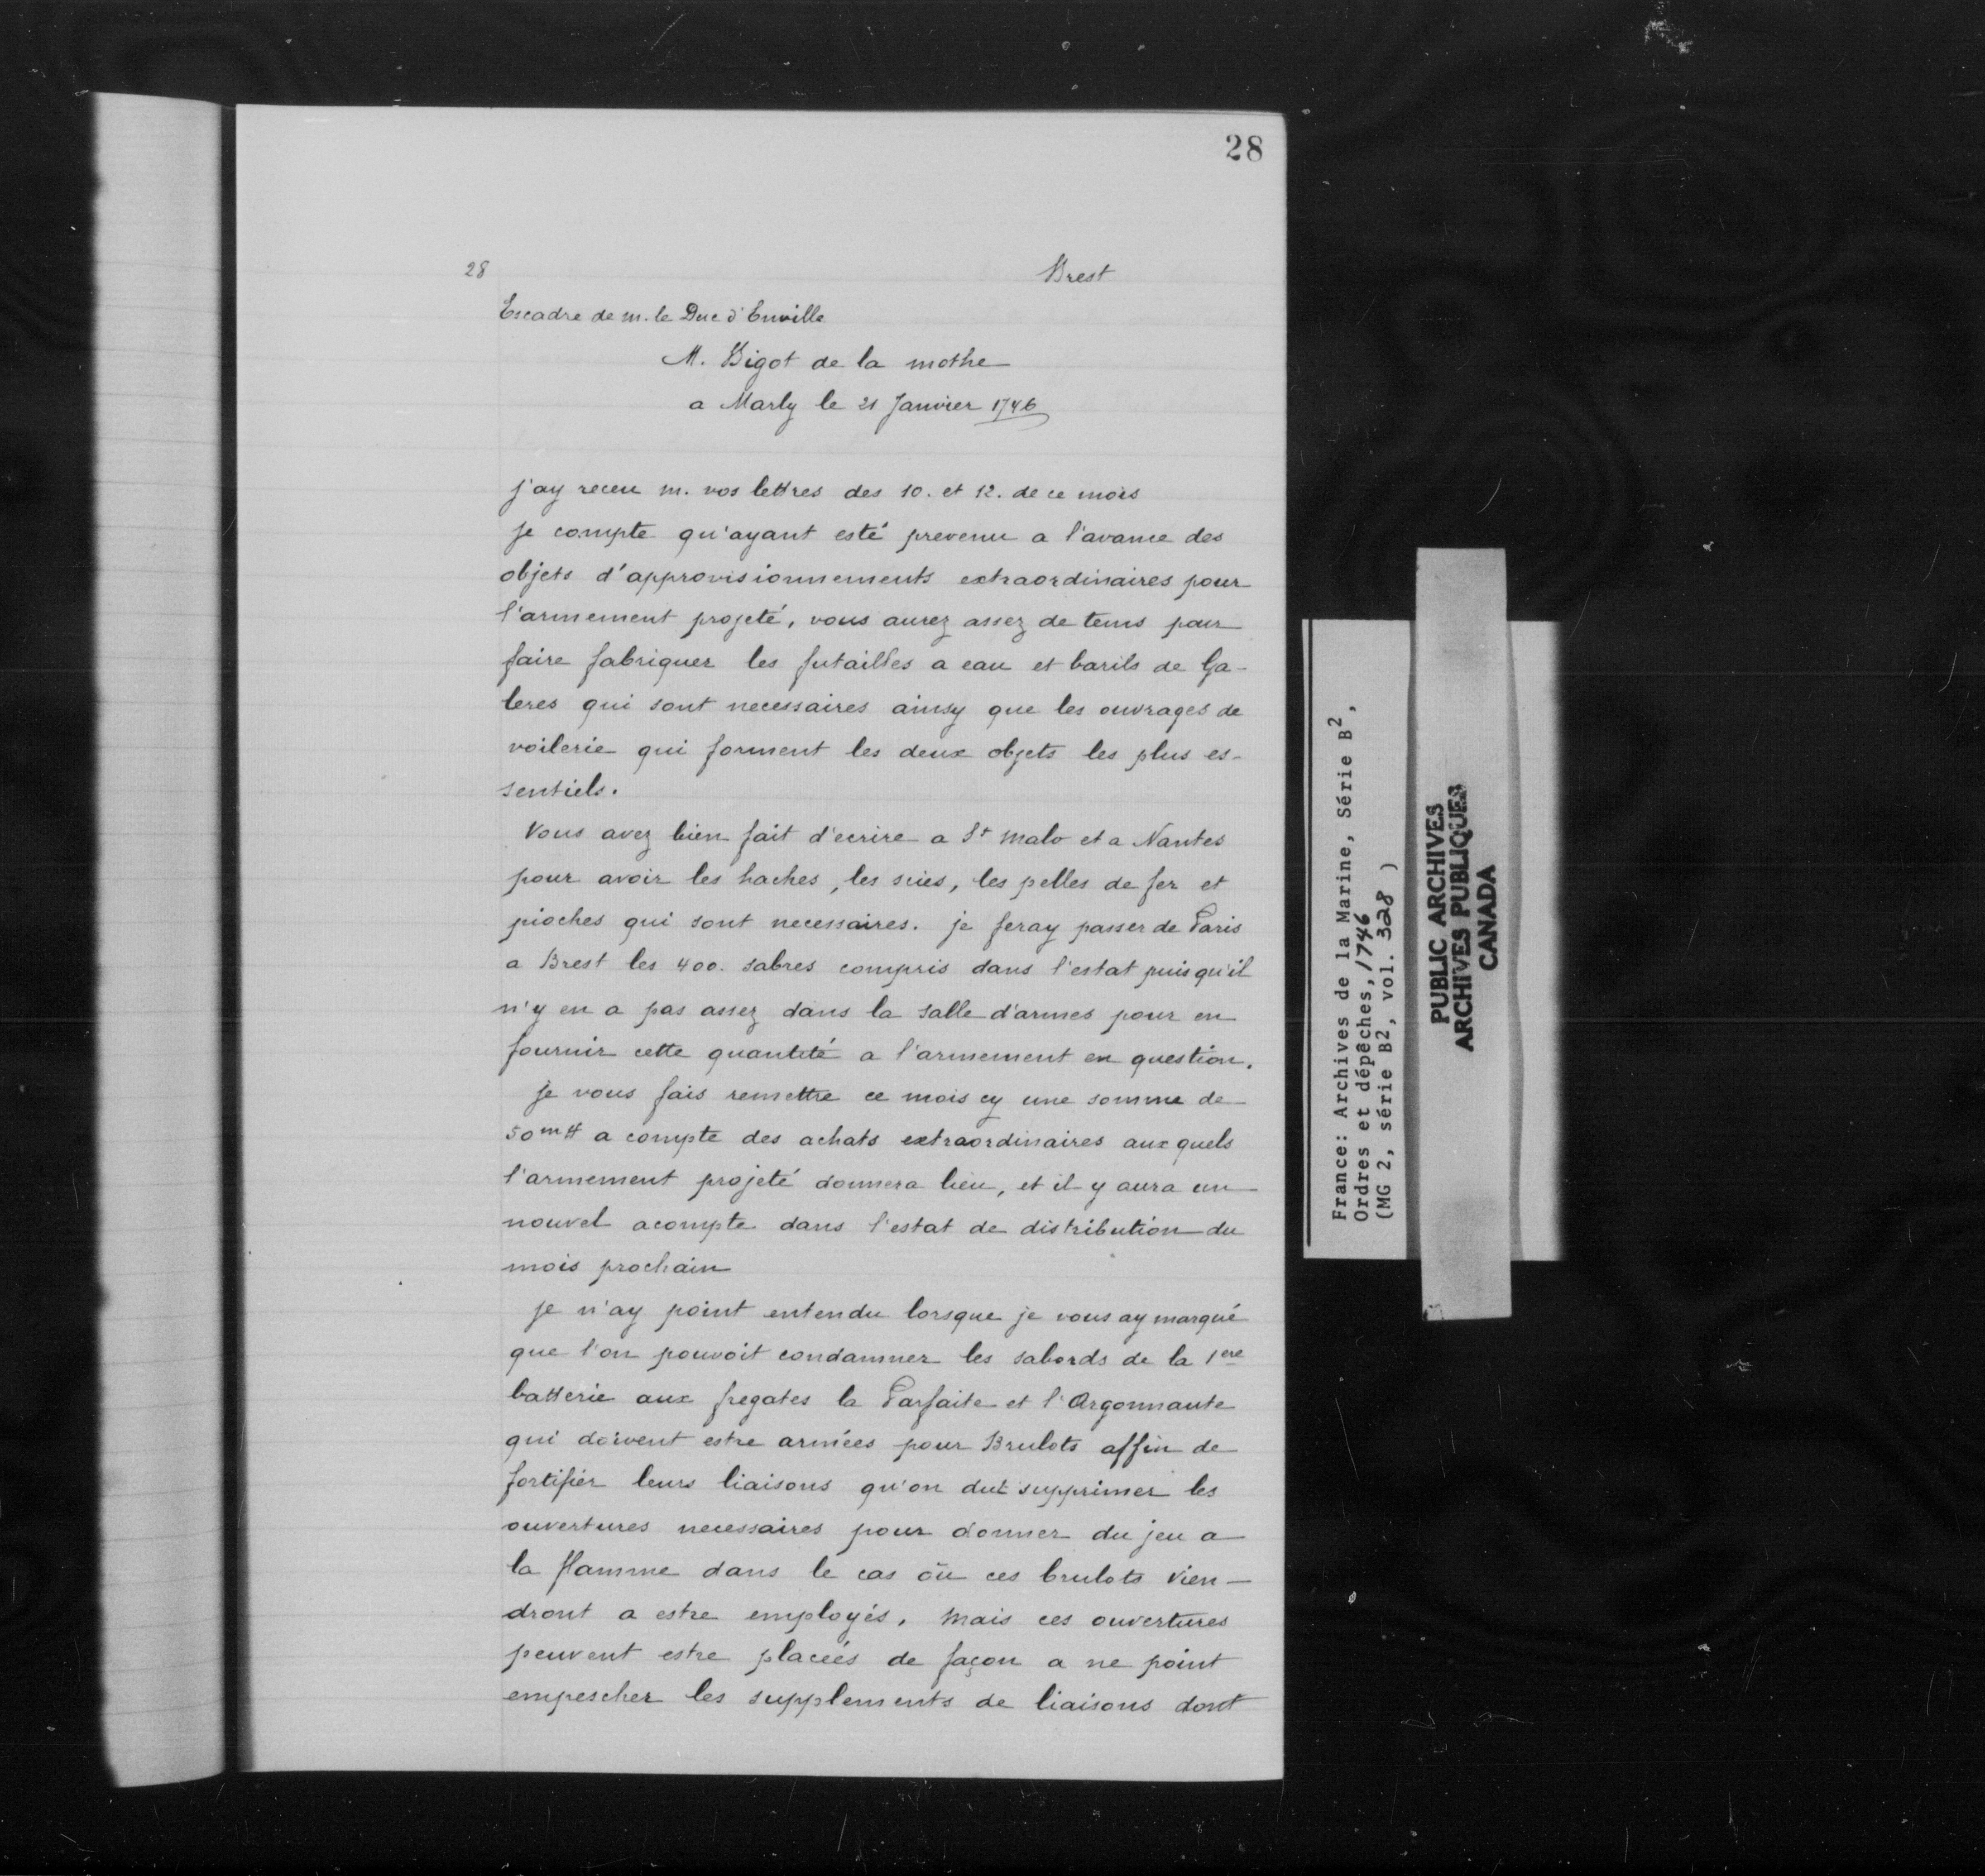 28
28
Brest
Escadre de m. le Duc d'Enville
M. Bigot de la mothe
a Marly le 21 Janvier 1746
j'ay receu m. vos lettres des 10. et 12. de ce mois
je compte qu'ayant esté prevenu a l'avance des
objets d'approvisionnements extraordinaires pour
l'armement projeté, vous aurez assez de tems pour
faire fabriquer les futailles a eau et barils de Ga-
leres qui sont necessaires ainsy que les ouvrages de
voilerie qui forment les deux objets les plus es-
sentiels.
Vous avez bien fait d'ecrire a St malo et a Nantes
pour avoir les haches, les scies, les pelles de fer et
pioches qui sont necessaires. je feray passer de Paris
a Brest les 400. sabres compris dans l'estat puis qu'il
n'y en a pas assez dans la salle d'armes pour en
fournir cette quantité a l'armement en question.
je vous fais remettre ce mois cy une somme de
50m ₶ a compte des achats extraordinaires aux quels
l'armement projeté donnera lieu, et il y aura un
nouvel acompte dans l'estat de distribution du
mois prochain
je n'ay point entendu lorsque je vous ay marqué
que l'on pouvoit condamner les sabords de la 1ere
batterie aux fregates la Parfaite et l'Argonnaute
qui doivent estre armées pour Brulots affin de
fortifier leurs liaisons qu'on dut supprimer les
ouvertures necessaires pour donner du jeu a
la flamme dans le cas où ces brulots vien-
dront a estre employés, mais ces ouvertures
peuvent estre placées de façon a ne point
empescher les supplements de liaisons dont
France: Archives de la Marine, Série B2,
Ordres et dépêches, 1746
(MG 2, série B2, vol. 328 )
PUBLIC ARCHIVES
ARCHIVES PUBLIQUES
CANADA